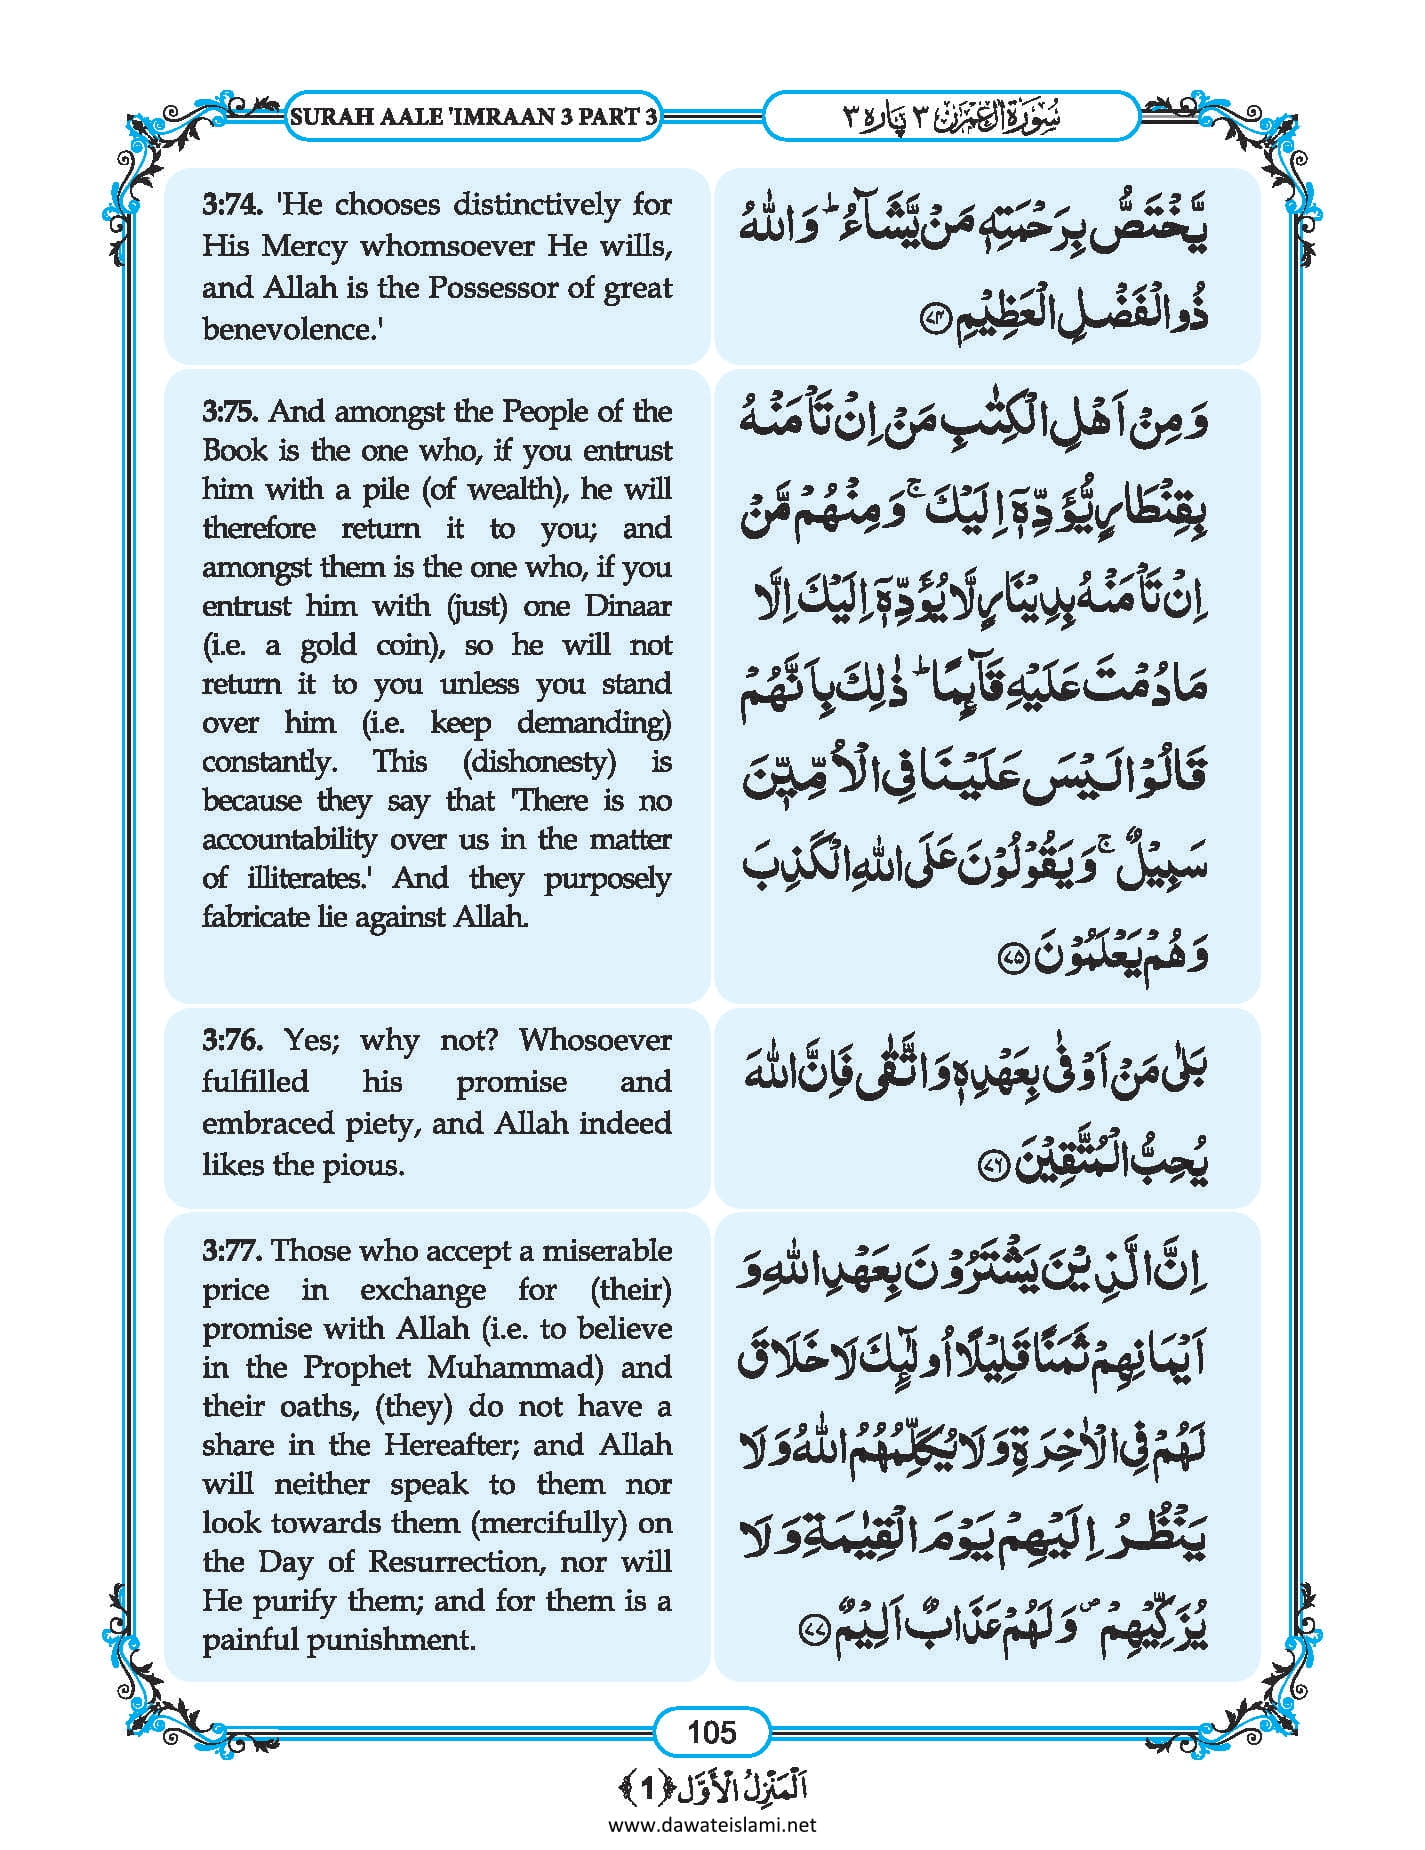 SURAH AALE 'IMRAAN 3 PART 3
سُوْرَةُ اٰلِ عِمْرٰن ٣ پَارہ ٣
3:74. 'He chooses distinctively for
His Mercy whomsoever He wills,
and Allah is the Possessor of great
benevolence.'
یَّخْتَصُّ بِرَحْمَتِهٖ مَنْ یَّشَآءُ ؕ وَ اللّٰهُ
ذُو الْفَضْلِ الْعَظِیْمِ ﴿۷۴﴾
3:75. And amongst the People of the
Book is the one who, if you entrust
him with a pile (of wealth), he will
therefore return it to you; and
amongst them is the one who, if you
entrust him with (just) one Dinaar
(i.e. a gold coin), so he will not
return it to you unless you stand
over him (i.e. keep demanding)
constantly. This (dishonesty) is
because they say that 'There is no
accountability over us in the matter
of illiterates.' And they purposely
fabricate lie against Allah.
وَ مِنْ اَهْلِ الْكِتٰبِ مَنْ اِنْ تَاْمَنْهُ
بِقِنْطَارٍ یُّؤَدِّهٖۤ اِلَیْكَ ۚ وَ مِنْهُمْ مَّنْ
اِنْ تَاْمَنْهُ بِدِیْنَارٍ لَّا یُؤَدِّهٖۤ اِلَیْكَ اِلَّا
مَا دُمْتَ عَلَیْهِ قَآىِٕمًا ؕ ذٰلِكَ بِاَنَّهُمْ
قَالُوْا لَیْسَ عَلَیْنَا فِی الْاُمِّیّٖنَ
سَبِیْلٌ ۚ وَ یَقُوْلُوْنَ عَلَى اللّٰهِ الْكَذِبَ
وَ هُمْ یَعْلَمُوْنَ ﴿۷۵﴾
3:76. Yes; why not? Whosoever
fulfilled his promise and
embraced piety, and Allah indeed
likes the pious.
بَلٰى مَنْ اَوْفٰى بِعَهْدِهٖ وَ اتَّقٰى فَاِنَّ اللّٰهَ
یُحِبُّ الْمُتَّقِیْنَ ﴿۷۶﴾
3:77. Those who accept a miserable
price in exchange for (their)
promise with Allah (i.e. to believe
in the Prophet Muhammad) and
their oaths, (they) do not have a
share in the Hereafter; and Allah
will neither speak to them nor
look towards them (mercifully) on
the Day of Resurrection, nor will
He purify them; and for them is a
painful punishment.
اِنَّ الَّذِیْنَ یَشْتَرُوْنَ بِعَهْدِ اللّٰهِ وَ
اَیْمَانِهِمْ ثَمَنًا قَلِیْلًا اُولٰٓىِٕكَ لَا خَلَاقَ
لَهُمْ فِی الْاٰخِرَةِ وَ لَا یُكَلِّمُهُمُ اللّٰهُ وَ لَا
یَنْظُرُ اِلَیْهِمْ یَوْمَ الْقِیٰمَةِ وَ لَا
یُزَكِّیْهِمْ ۪ وَ لَهُمْ عَذَابٌ اَلِیْمٌ ﴿۷۷﴾
105
اَلْمَنْزِلُ الْاَوَّل ﴿1﴾
www.dawateislami.net